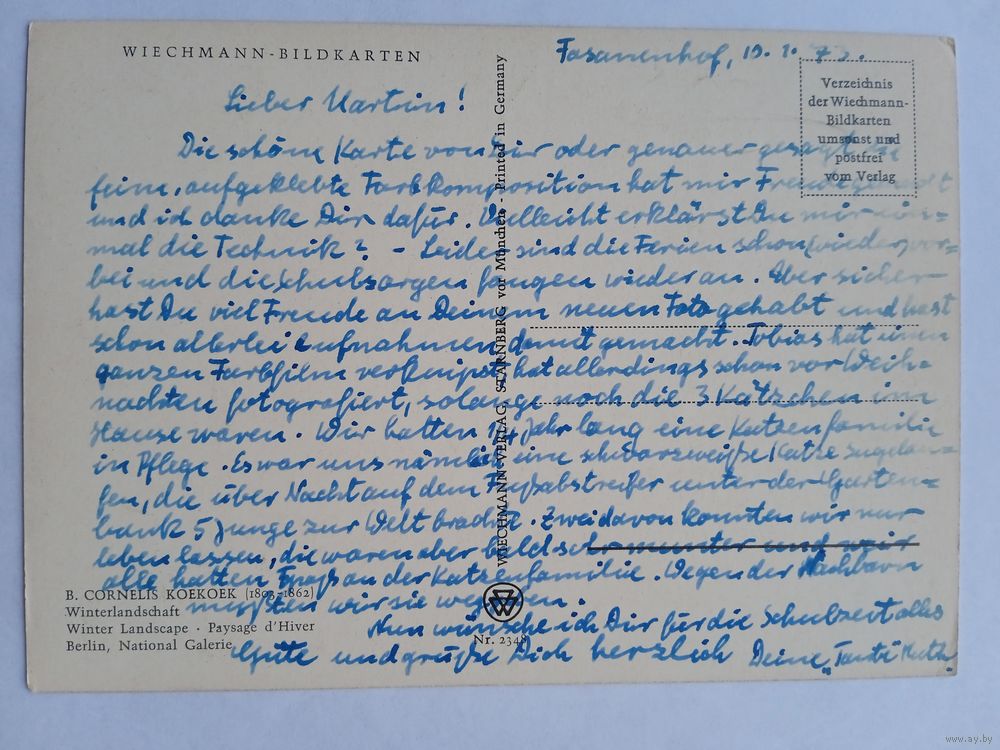 WIECHMANN-BILDKARTEN
Fasanenhof, 10. 1. 73.
Verzeichnis
der Wiechmann-
Bildkarten
umsonst und
postfrei
vom Verlag
Lieber Martin!
Die schöne Karte von Dir oder genauer gesagt die
feine, aufgeklebte Farbkomposition hat mir Freude gemacht
und ich danke Dir dafür. Vielleicht erklärst Du mir ein=
mal die Technik? - Leider sind die Ferien schon (wieder) vor=
bei und die Schulsorgen fangen wieder an. Aber sicher
hast Du viel Freude an Deinem neuen Foto gehabt und hast
schon allerlei Aufnahmen damit gemacht. Tobias hat einen
ganzen Farbfilm verknipst, hat allerdings schon vor Weih=
nachten fotografiert, solange noch die 3 Kätzchen im
Hause waren. Wir hatten Jahr lang eine Katzenfamilie
in Pflege. Es war uns nämlich eine schwarzweiße Katze zugelau=
fen, die über Nacht auf dem Fußabstreifer unter der Garten=
bank 5 Junge zur Welt brachte. Zwei davon konnten wir nur
leben lassen, die waren aber bald sehr munter und wir
alle hatten Spaß an der Katzenfamilie. Wegen der Nachbarn
mußten wir sie
Nun wünsche ich Dir für die Schulzeit alles
Gute und grüße Dich herzlich Deine "Tante Ruth"
B. CORNELIS KOEKOEK (1803-1862)
Winterlandschaft
Winter Landscape · Paysage d'Hiver
Berlin, National Galerie
WIECHMANN-VERLAG, STARNBERG vor München - Printed in Germany
Nr. 2348
www.ay.by